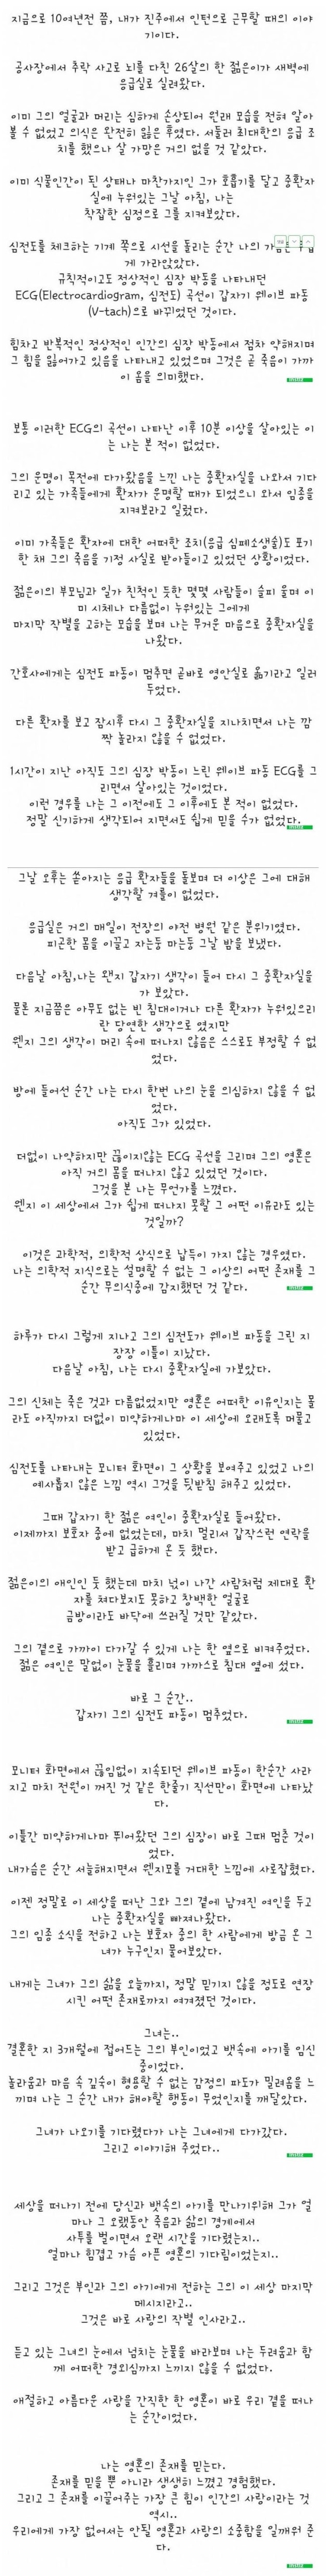 지금으로 10여년전 쯤, 내가 진주에서 인턴으로 근무할 때의 이야
기이다.
공사장에서 추락 사고로 뇌를 다친 26살의 한 젊은이가 새벽에
응급실로 실려왔다.
이미 그의 얼굴과 머리는 심하게 손상되어 원래 모습을 전혀 알아
볼 수 없었고 의식은 완전히 잃은 후였다. 서둘러 최대한의 응급 조
치를 했으나 살 가망은 거의 없을 것 같았다.
이미 식물인간이 된 상태나 마찬가지인 그가 호흡기를 달고 중환자
실에 누워있는 그날 아침, 나는
착잡한 심정으로 그를 지켜보았다.
심전도를 체크하는 기계 쪽으로 시선을 돌리는 순간 나의
게 가라앉았다.
규칙적이고도 정상적인 심장 박동을 나타내던
ECG(Electrocardiogram, 심전도) 곡선이 갑자기 웨이브 파동
(V-tach)으로 바뀌었던 것이다.
힘차고 반복적인 정상적인 인간의 심장 박동에서 점차 약해지며
그 힘을 잃어가고 있음을 나타내고 있었으며 그것은 곧 죽음이 가까
이 옴을 의미했다.
보통 이러한 ECG의 곡선이 나타난 이후 10분 이상을 살아있는 이
는 나는 본 적이 없었다.
그의 운명이 목전에 다가왔음을 느낀 나는 중환자실을 나와서 기다
리고 있는 가족들에게 환자가 운명할 때가 되었으니 와서 임종을
지켜보라고 일렀다.
이미 가족들은 환자에 대한 어떠한 조치(응급 심폐소생술)도 포기
한 채 그의 죽음을 기정 사실로 받아들이고 있었던 상황이었다.
젊은이의 부모님과 일가 친척인 듯한 몇몇 사람들이 슬피 울며 이
미 시체나 다름없이 누워있는 그에게
마지막 작별을 고하는 모습을 보며 나는 무거운 마음으로 중환자실을
나왔다.
간호사에게는 심전도 파동이 멈추면 곧바로 영안실로 옮기라고 일러
두었다.
다른 환자를 보고 잠시후 다시 그 중환자실을 지나치면서 나는 깜
짝 놀라지 않을 수 없었다.
1시간이 지난 아직도 그의 심장 박동이 느린 웨이브 파동 ECG를 그
리면서 살아있는 것이었다.
이런 경우를 나는 그 이전에도 그 이후에도 본 적이 없었다.
정말 신기하게 생각되어 지면서도 쉽게 믿을 수가 없었다.
그날 오후는 쏟아지는 응급 환자들을 돌보며 더 이상은 그에 대해
생각할 겨를이 없었다.
응급실은 거의 매일이 전장의 야전 병원 같은 분위기였다.
피곤한 몸을 이끌고 자는둥 마는둥 그날 밤을 보냈다.
다음날 아침,나는 왠지 갑자기 생각이 들어 다시 그 중환자실을
가 보았다.
물론 지금쯤은 아무도 없는 빈 침대이거나 다른 환자가 누워있으리
란 당연한 생각으로 였지만
웬지 그의 생각이 머리 속에 떠나지 않음은 스스로도 부정할 수 없
었다.
방에 들어선 순간 나는 다시 한번 나의 눈을 의심하지 않을 수 없
었다.
아직도 그가 있었다.
더없이 나약하지만 끊이지않는 ECG 곡선을 그리며 그의 영혼은
아직 거의 몸을 떠나지 않고 있었던 것이다.
그것을 본 나는 무언가를 느꼈다.
웬지 이 세상에서 그가 쉽게 떠나지 못할 그 어떤 이유라도 있는
것일까?
이것은 과학적, 의학적 상식으로 납득이 가지 않는 경우였다.
나는 의학적 지식으로는 설명할 수 없는 그 이상의 어떤 존재를 그
순간 무의식중에 감지했던 것 같다.
하루가 다시 그렇게 지나고 그의 심전도가 웨이브 파동을 그린 지
장장 이틀이 지났다.
다음날 아침, 나는 다시 중환자실에 가보았다.
그의 신체는 죽은 것과 다름없었지만 영혼은 어떠한 이유인지는 몰
라도 아직까지 더없이 미약하게나마 이 세상에 오래도록 머물고
있었다.
심전도를 나타내는 모니터 화면이 그 상황을 보여주고 있었고 나의
예사롭지 않은 느낌 역시 그것을 뒷받침 해주고 있었다.
그때 갑자기 한 젊은 여인이 중환자실로 들어왔다.
이제까지 보호자 중에 없었는데, 마치 멀리서 갑작스런 연락을
받고 급하게 온 듯 했다.
젊은이의 애인인 듯 했는데 마치 넋이 나간 사람처럼 제대로 환
자를 쳐다보지도 못하고 창백한 얼굴로
금방이라도 바닥에 쓰러질 것만 같았다.
그의 곁으로 가까이 다가갈 수 있게 나는 한 옆으로 비켜주었다.
젊은 여인은 말없이 눈물을 흘리며 가까스로 침대 옆에 섰다.
바로 그 순간..
갑자기 그의 심전도 파동이 멈추었다.
모니터 화면에서 끊임없이 지속되던 웨이브 파동이 한순간 사라
지고 마치 전원이 꺼진 것 같은 한줄기 직선만이 화면에 나타났
다.
이틀간 미약하게나마 뛰어왔던 그의 심장이 바로 그때 멈춘 것이
었다.
내가슴은 순간 서늘해지면서 웬지모를 거대한 느낌에 사로잡혔다.
이젠 정말로 이 세상을 떠난 그와 그의 곁에 남겨진 여인을 두고
나는 중환자실을 빠져나왔다.
그의 임종 소식을 전하고 나는 보호자 중의 한 사람에게 방금 온 그
녀가 누구인지 물어보았다.
내게는 그녀가 그의 삶을 오늘까지, 정말 믿기지 않을 정도로 연장
시킨 어떤 존재로까지 여겨졌던 것이다.
그녀는..
결혼한 지 3개월에 접어드는 그의 부인이었고 뱃속에 아기를 임신
중이었다.
놀라움과 마음 속 깊숙이 형용할 수 없는 감정의 파도가 밀려옴을 느
끼며 나는 그 순간 내가 해야할 행동이 무엇인지를 깨달았다.
그녀가 나오기를 기다렸다가 나는 그녀에게 다가갔다.
그리고 이야기해 주었다..
세상을 떠나기 전에 당신과 뱃속의 아기를 만나기위해 그가 얼
마나 그 오랫동안 죽음과 삶의 경계에서
사투를 벌이면서 오랜 시간을 기다렸는지..
얼마나 힘겹고 가슴 아픈 영혼의 기다림이었는지..
그리고 그것은 부인과 그의 아기에게 전하는 그의 이 세상 마지막
메시지라고..
그것은 바로 사랑의 작별 인사라고..
듣고 있는 그녀의 눈에서 넘치는 눈물을 바라보며 나는 두려움과 함
께 어떠한 경외심까지 느끼지 않을 수 없었다.
애절하고 아름다운 사랑을 간직한 한 영혼이 바로 우리 곁을 떠나
는 순간이었다.
나는 영혼의 존재를 믿는다.
존재를 믿을 뿐 아니라 생생히 느꼈고 경험했다.
그리고 그 존재를 이끌어주는 가장 큰 힘이 인간의 사랑이라는 것
역시..
우리에게 가장 없어서는 안될 영혼과 사랑의 소중함을 일깨워 준
다.